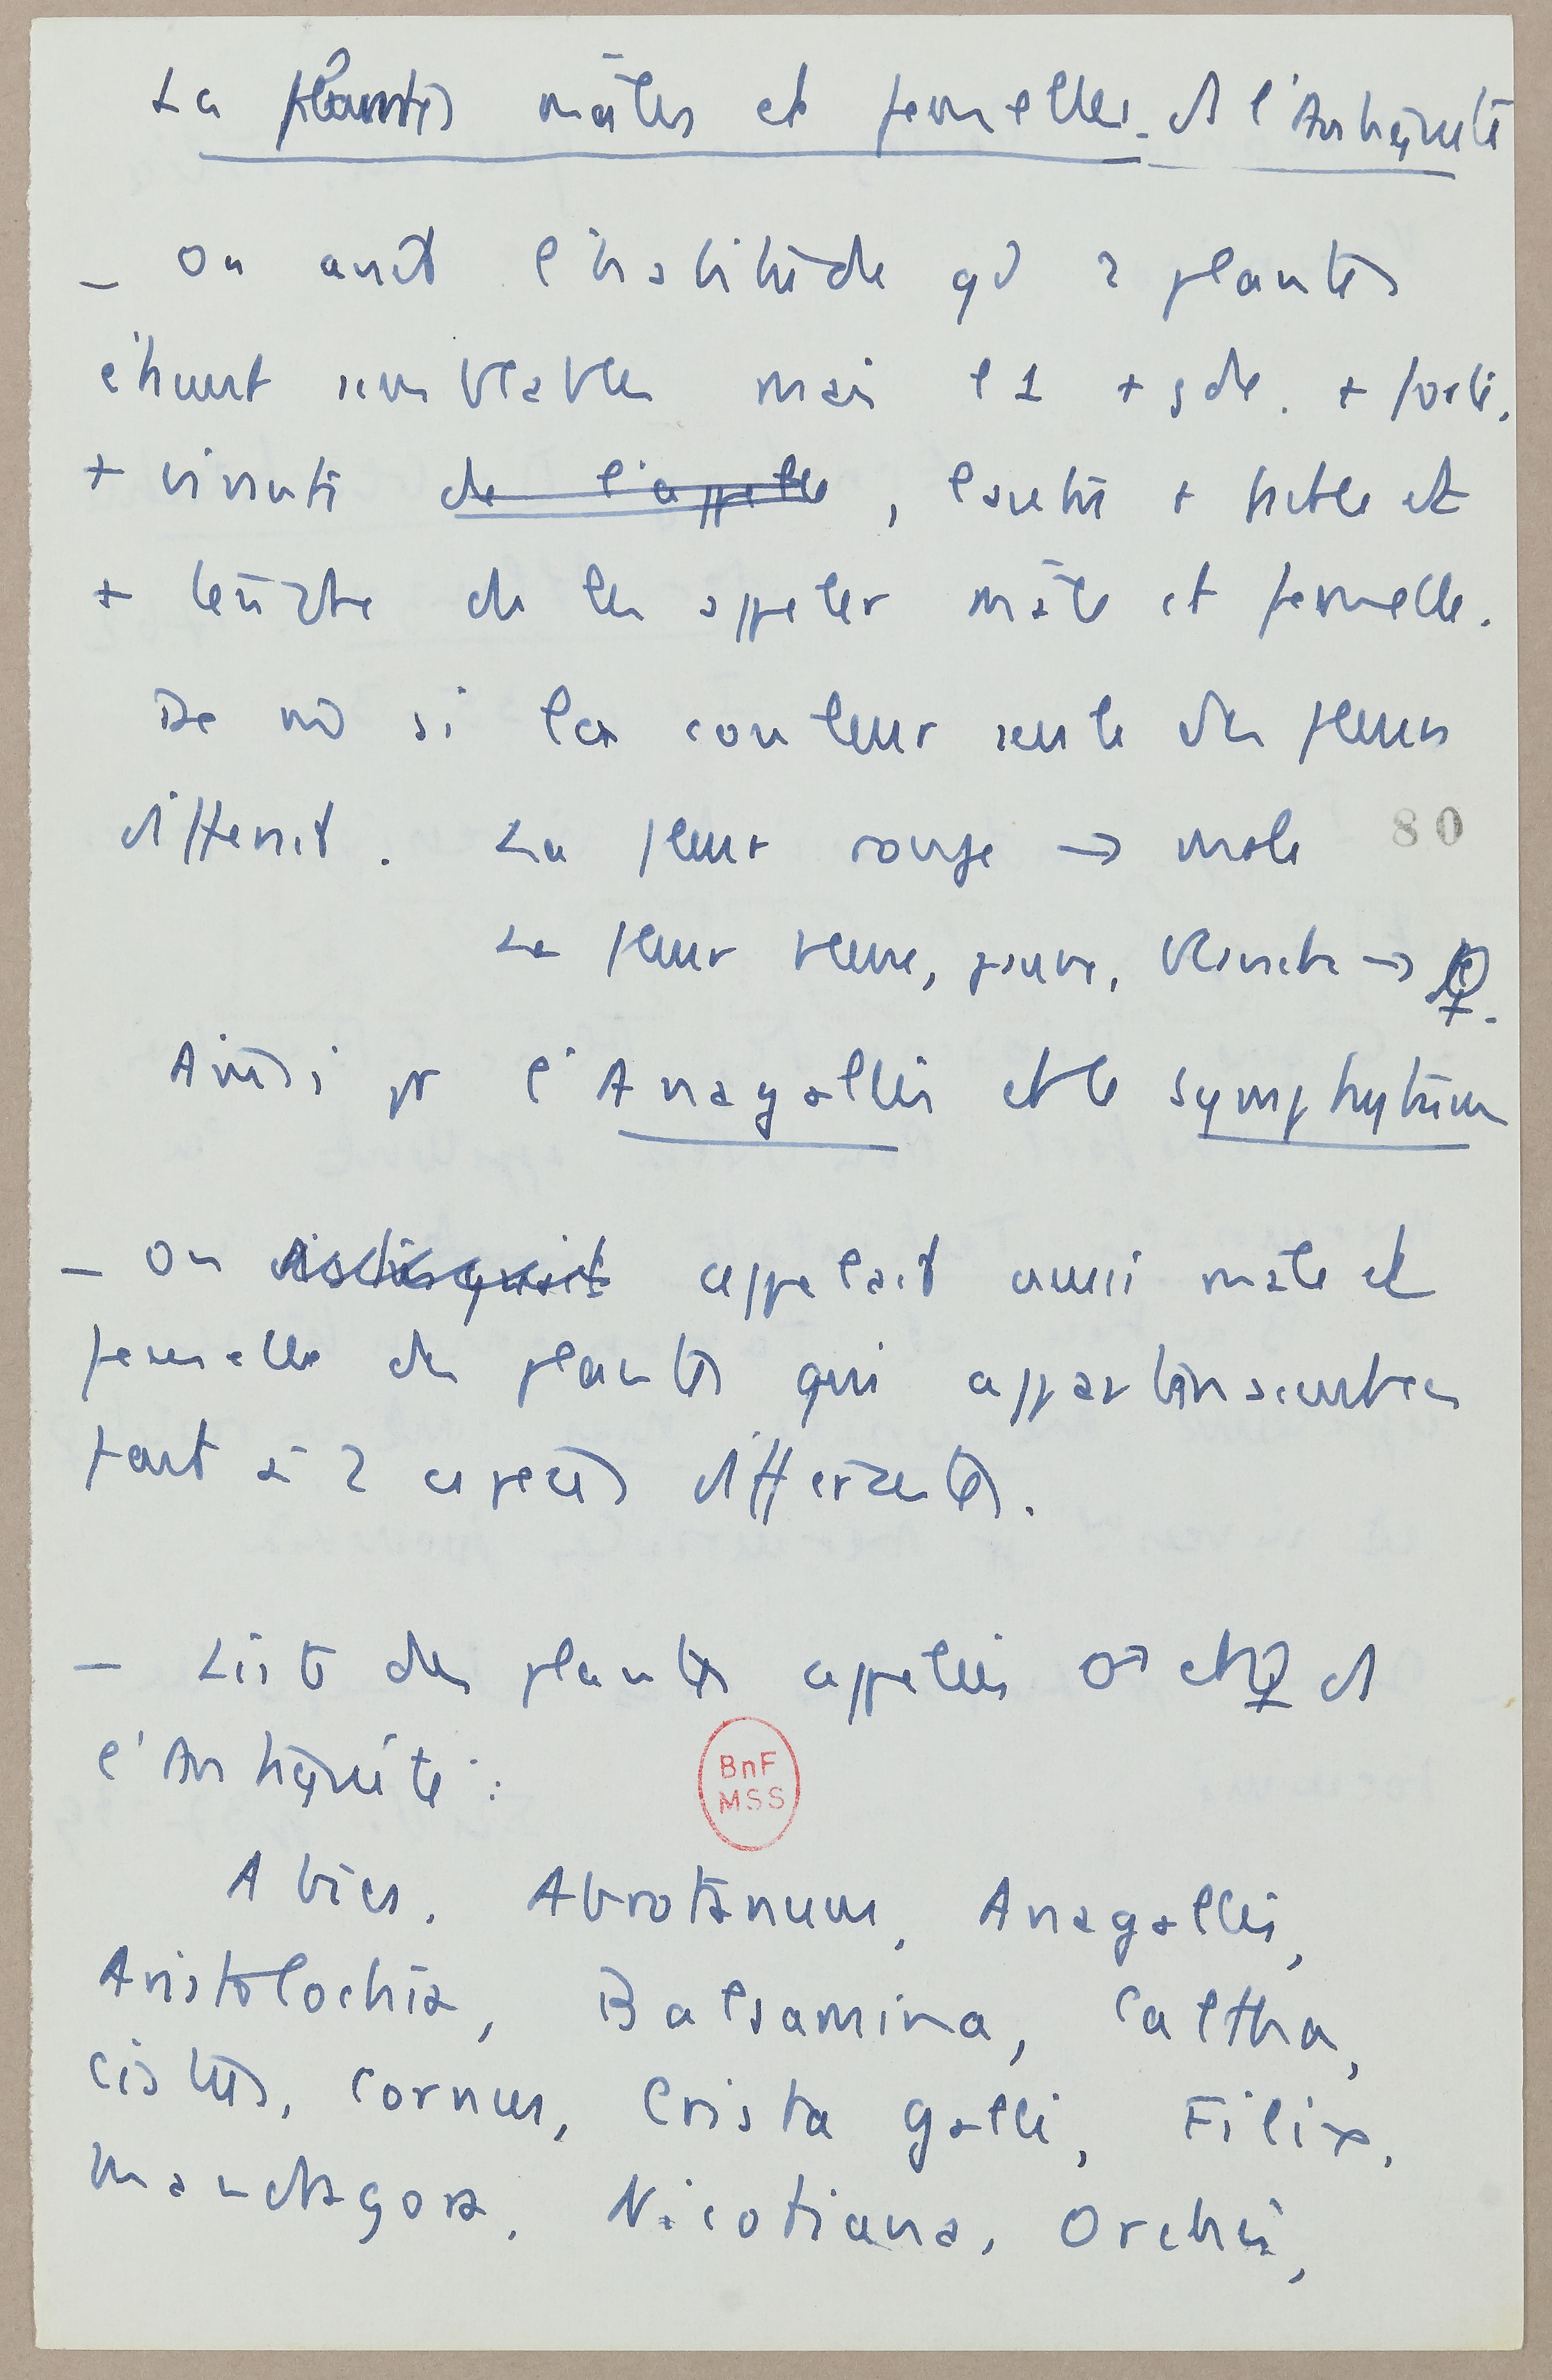 La plantes mâles et femelles. ds l'Antiquité
— on avait l'habitude qd 2 plantes
étaient semblables mais l'1 + gde. + forte.
+ vivante de l'appeler, l'autre + faible et
+ de les appeler mâle et femelle.
De mê si la couleur seule des fleurs
différait. La fleur rouge → mâle
La fleur bleue, jaune, blanche → ♀.
Ainsi pr l'Anagallis et le symphytum
80
— on distinguait appelait aussi mâle et
femelle des plantes qui appartenaient en
fait à 2 espèces différentes.
— Liste des plantes appelées ♂ et ♀ ds
l'Antiquité :
BnF
MSS
Abies. Abrotanum, Anagallis,
Aristolochia, Balsamina, Caltha,
Cistus, Cornus, Crista galli, Filix,
Mandragora, Nicotiana, Orchis,